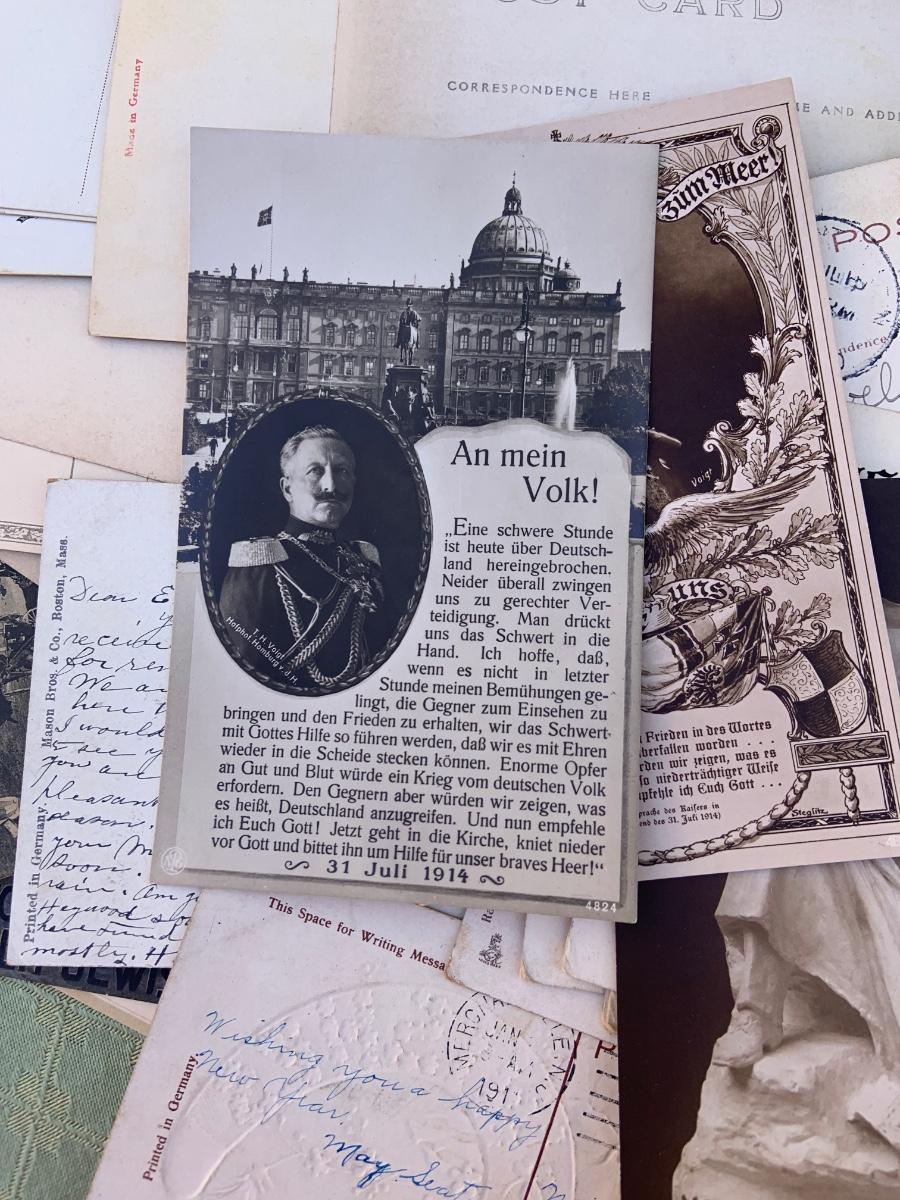 POST CARD
CORRESPONDENCE HERE
Made in Germany
zum Meer!
An mein
Volk!
„Eine schwere Stunde
ist heute über Deutsch-
land hereingebrochen.
Neider überall zwingen
uns zu gerechter Ver-
teidigung. Man drückt
uns das Schwert in die
Hand. Ich hoffe, daß,
wenn es nicht in letzter
Stunde meinen Bemühungen ge-
lingt, die Gegner zum Einsehen zu
bringen und den Frieden zu erhalten, wir das Schwert
mit Gottes Hilfe so führen werden, daß wir es mit Ehren
wieder in die Scheide stecken können. Enorme Opfer
an Gut und Blut würde ein Krieg vom deutschen Volk
erfordern. Den Gegnern aber würden wir zeigen, was
es heißt, Deutschland anzugreifen. Und nun empfehle
ich Euch Gott! Jetzt geht in die Kirche, kniet nieder
vor Gott und bittet ihn um Hilfe für unser braves Heer!“
31 Juli 1914
4824
T. H. Voigt
Hofphot. Homburg v. d. H.
Voigt
uns
Frieden in des Wortes
überfallen worden . . .
rden wir zeigen, was es
so niederträchtiger Weise
pfehle ich Euch Gott . . .
sprache des Kaisers in
end des 31. Juli 1914)
Steglitz
POS
ndence
Mason Bros. & Co., Boston, Mass.
Printed in Germany.
Dear
for
We
here
I would
to see
you are
pleasant
season.
your
soon.
rain.
Heywood
have
mostly. H
This Space for Writing Messa
Printed in Germany.
JAN
Wishing you a happy
New Year.
May